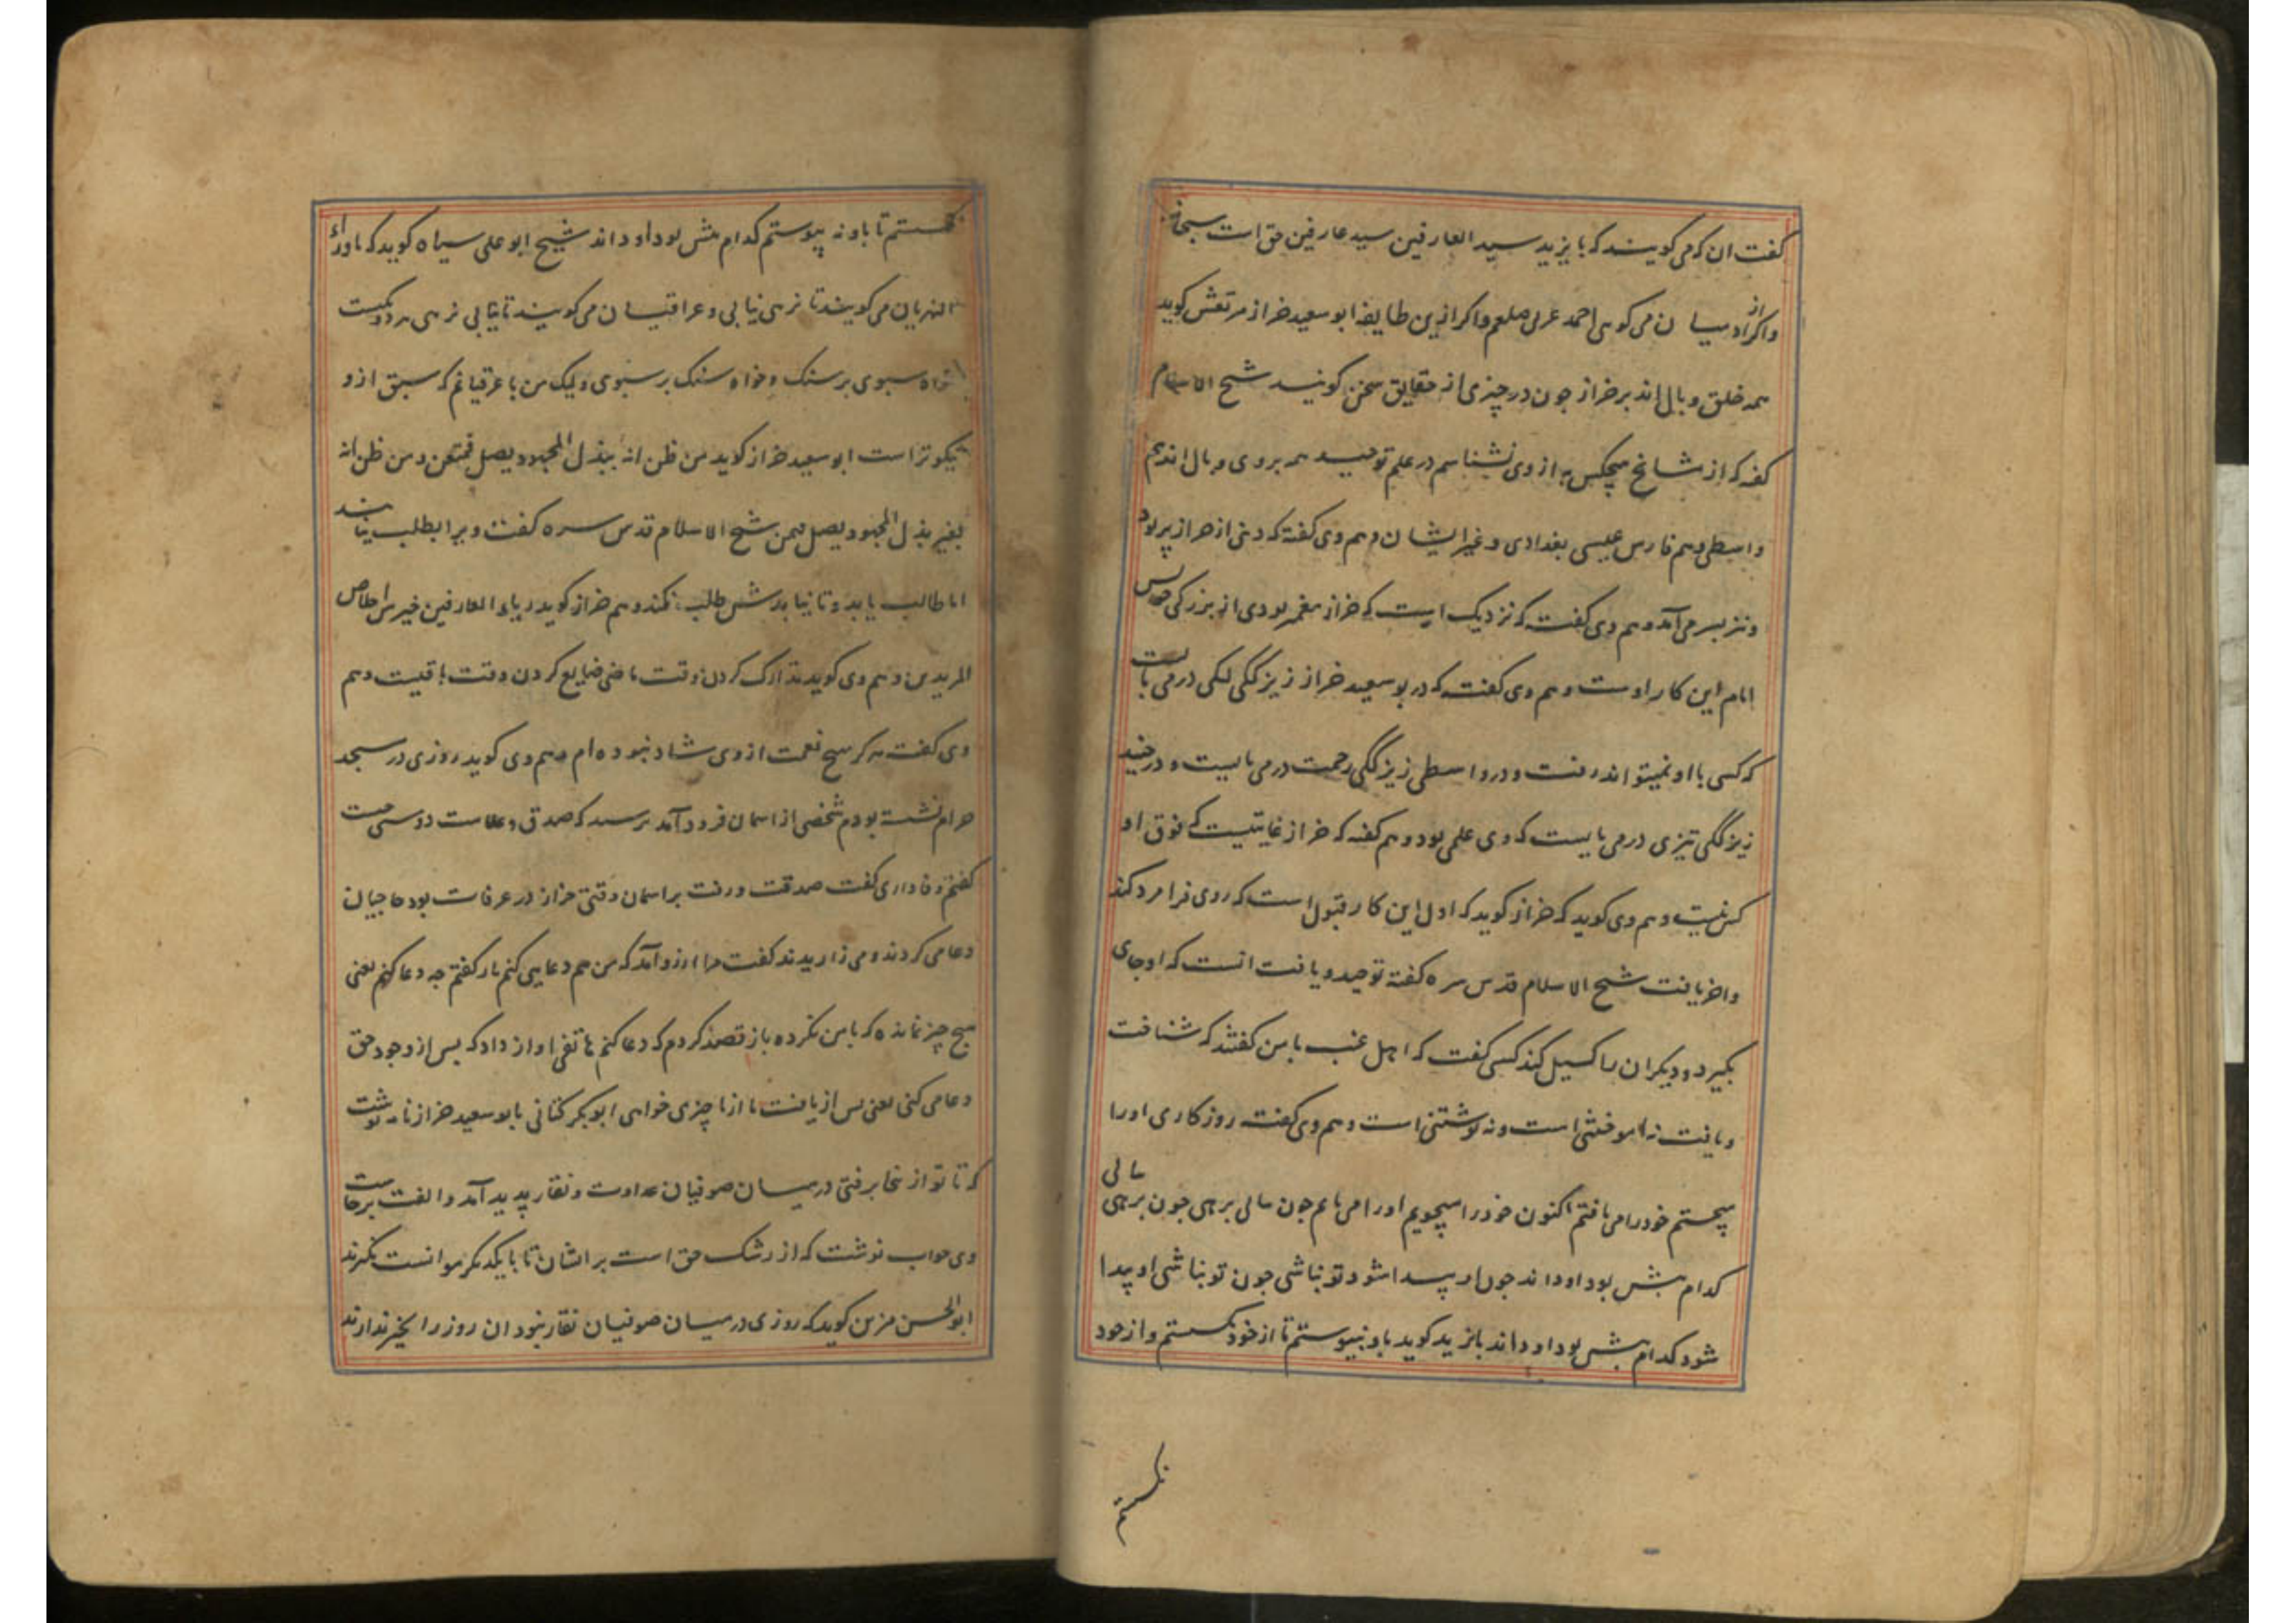 گفت ان که می گویند که بایزید سید العارفین سید عارفین حق است سبحانه
واکر از ادمیان می گوئی احمد عربی صلعم واکر ازین طایفه ابو سعید خراز مرتعش گوید
همه خلق وبال اند بر خراز جون در چیزی از حقایق سخن گویند شیخ الاسلام
گفته که از مشایخ هیچکس به از وی نشناسم در علم توحید همه بروی وبال اند هم
واسطی و هم فارس عیسی بغدادی و غیر ایشان و هم وی گفته که دنی از خراز پر بود
ونیز بسر می آمد و هم وی گفت که نزدیک است که خراز پیغمبر بودی از بزرکی خویش
امام این کار اوست و هم وی گفت که در بو سعید خراز زیزگکی لنکی در می بایست
که کسی با او نمیتواند رفت و در واسطی زیزگکی رحمت در می بایست و در جنید
زیزگکی تیزی در می بایست که وی علمی بود و هم گفته که خراز غایتیست که فوق او
کس نیست و هم وی گوید که خراز گوید که اول این کار قبول است که روی فرا مرد کند
واخر یافت شیخ الاسلام قدس سره گفته توحید و یافت انست که او جای
بگیرد و دیکران را کسیل کند کسی گفت که اهل غیب با من گفتند که شناخت
ویافت نه اموختنی است و نه نوشتنی است و هم وی گفت روزکاری اورا
میجستم خود را می یافتم اکنون خود را میجویم اورا می یابم جون بیابی برهی جون برهی بیابی
کدام بیش بود او داند جون او پیدا شود تو نباشی جون تو نباشی او پیدا
شود کدام بیش بود او داند بایزید گوید باو نپیوستم تا از خود نکسستم واز خود
نکسستم
نکسستم تا باو نه پیوستم کدام بیش بود او داند شیخ ابو علی سیاه گوید که ماوراء
النهریان می گویند تا نرهی نیابی و عراقیان می گویند تا نیابی نرهی هر دو یکیست
خواه سبوی بر سنک و خواه سنک بر سبوی ولیک من با عرقیانم که سبق ازو
نیکوتر است ابو سعید خراز گوید من ظن انه ببذل المجهود یصل فمتعن ومن ظن انه
بغیر بذل المجهود یصل فمتمن شیخ الاسلام قدس سره گفت ویرا بطلب نیابند
اما طالب یابد و تا نیابدش طلب نکند و هم خراز گوید ریاء العارفین خیر من اخلاص
المریدین و هم وی گوید تدارک کردن وقت ماضی ضایع کردن وقت باقیست و هم
وی گفت هرکز بهیچ نعمت از وی شاد نبوده ام و هم وی گوید روزی در مسجد
حرام نشسته بودم شخصی از اسمان فرود آمد پرسید که صدق و علامت دوستی چیست
گفتم وفاداری گفت صدقت و رفت بر اسمان وقتی خراز در عرفات بود حاجیان
دعا می کردند و می زاریدند گفت مرا ارزو آمد که من هم دعایی کنم باز گفتم جه دعا کنم یعنی
هیچ چیز نمانده که با من نکرده باز قصد کردم که دعا کنم هاتفی اواز داد که پس از وجود حق
دعا می کنی یعنی پس از یافت ما از ما چیزی خواهی ابو بکر کتانی بابو سعید خراز نامه نوشت
که تا تو از نجا برفتی در میان صوفیان عداوت و نقار پدید آمد والفت برخاست
وی جواب نوشت که از رشک حق است بر ایشان تا با یکدیکر موانست نکیرند
ابو الحسن مزین گوید که روزی در میان صوفیان نقار نبود ان روز را بخیر ندارند